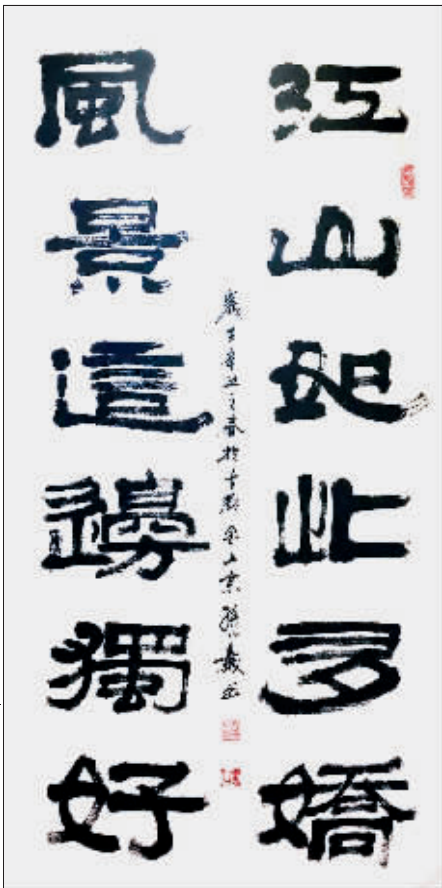 江山如此多嬌
辛丑之春於
風景這邊獨好